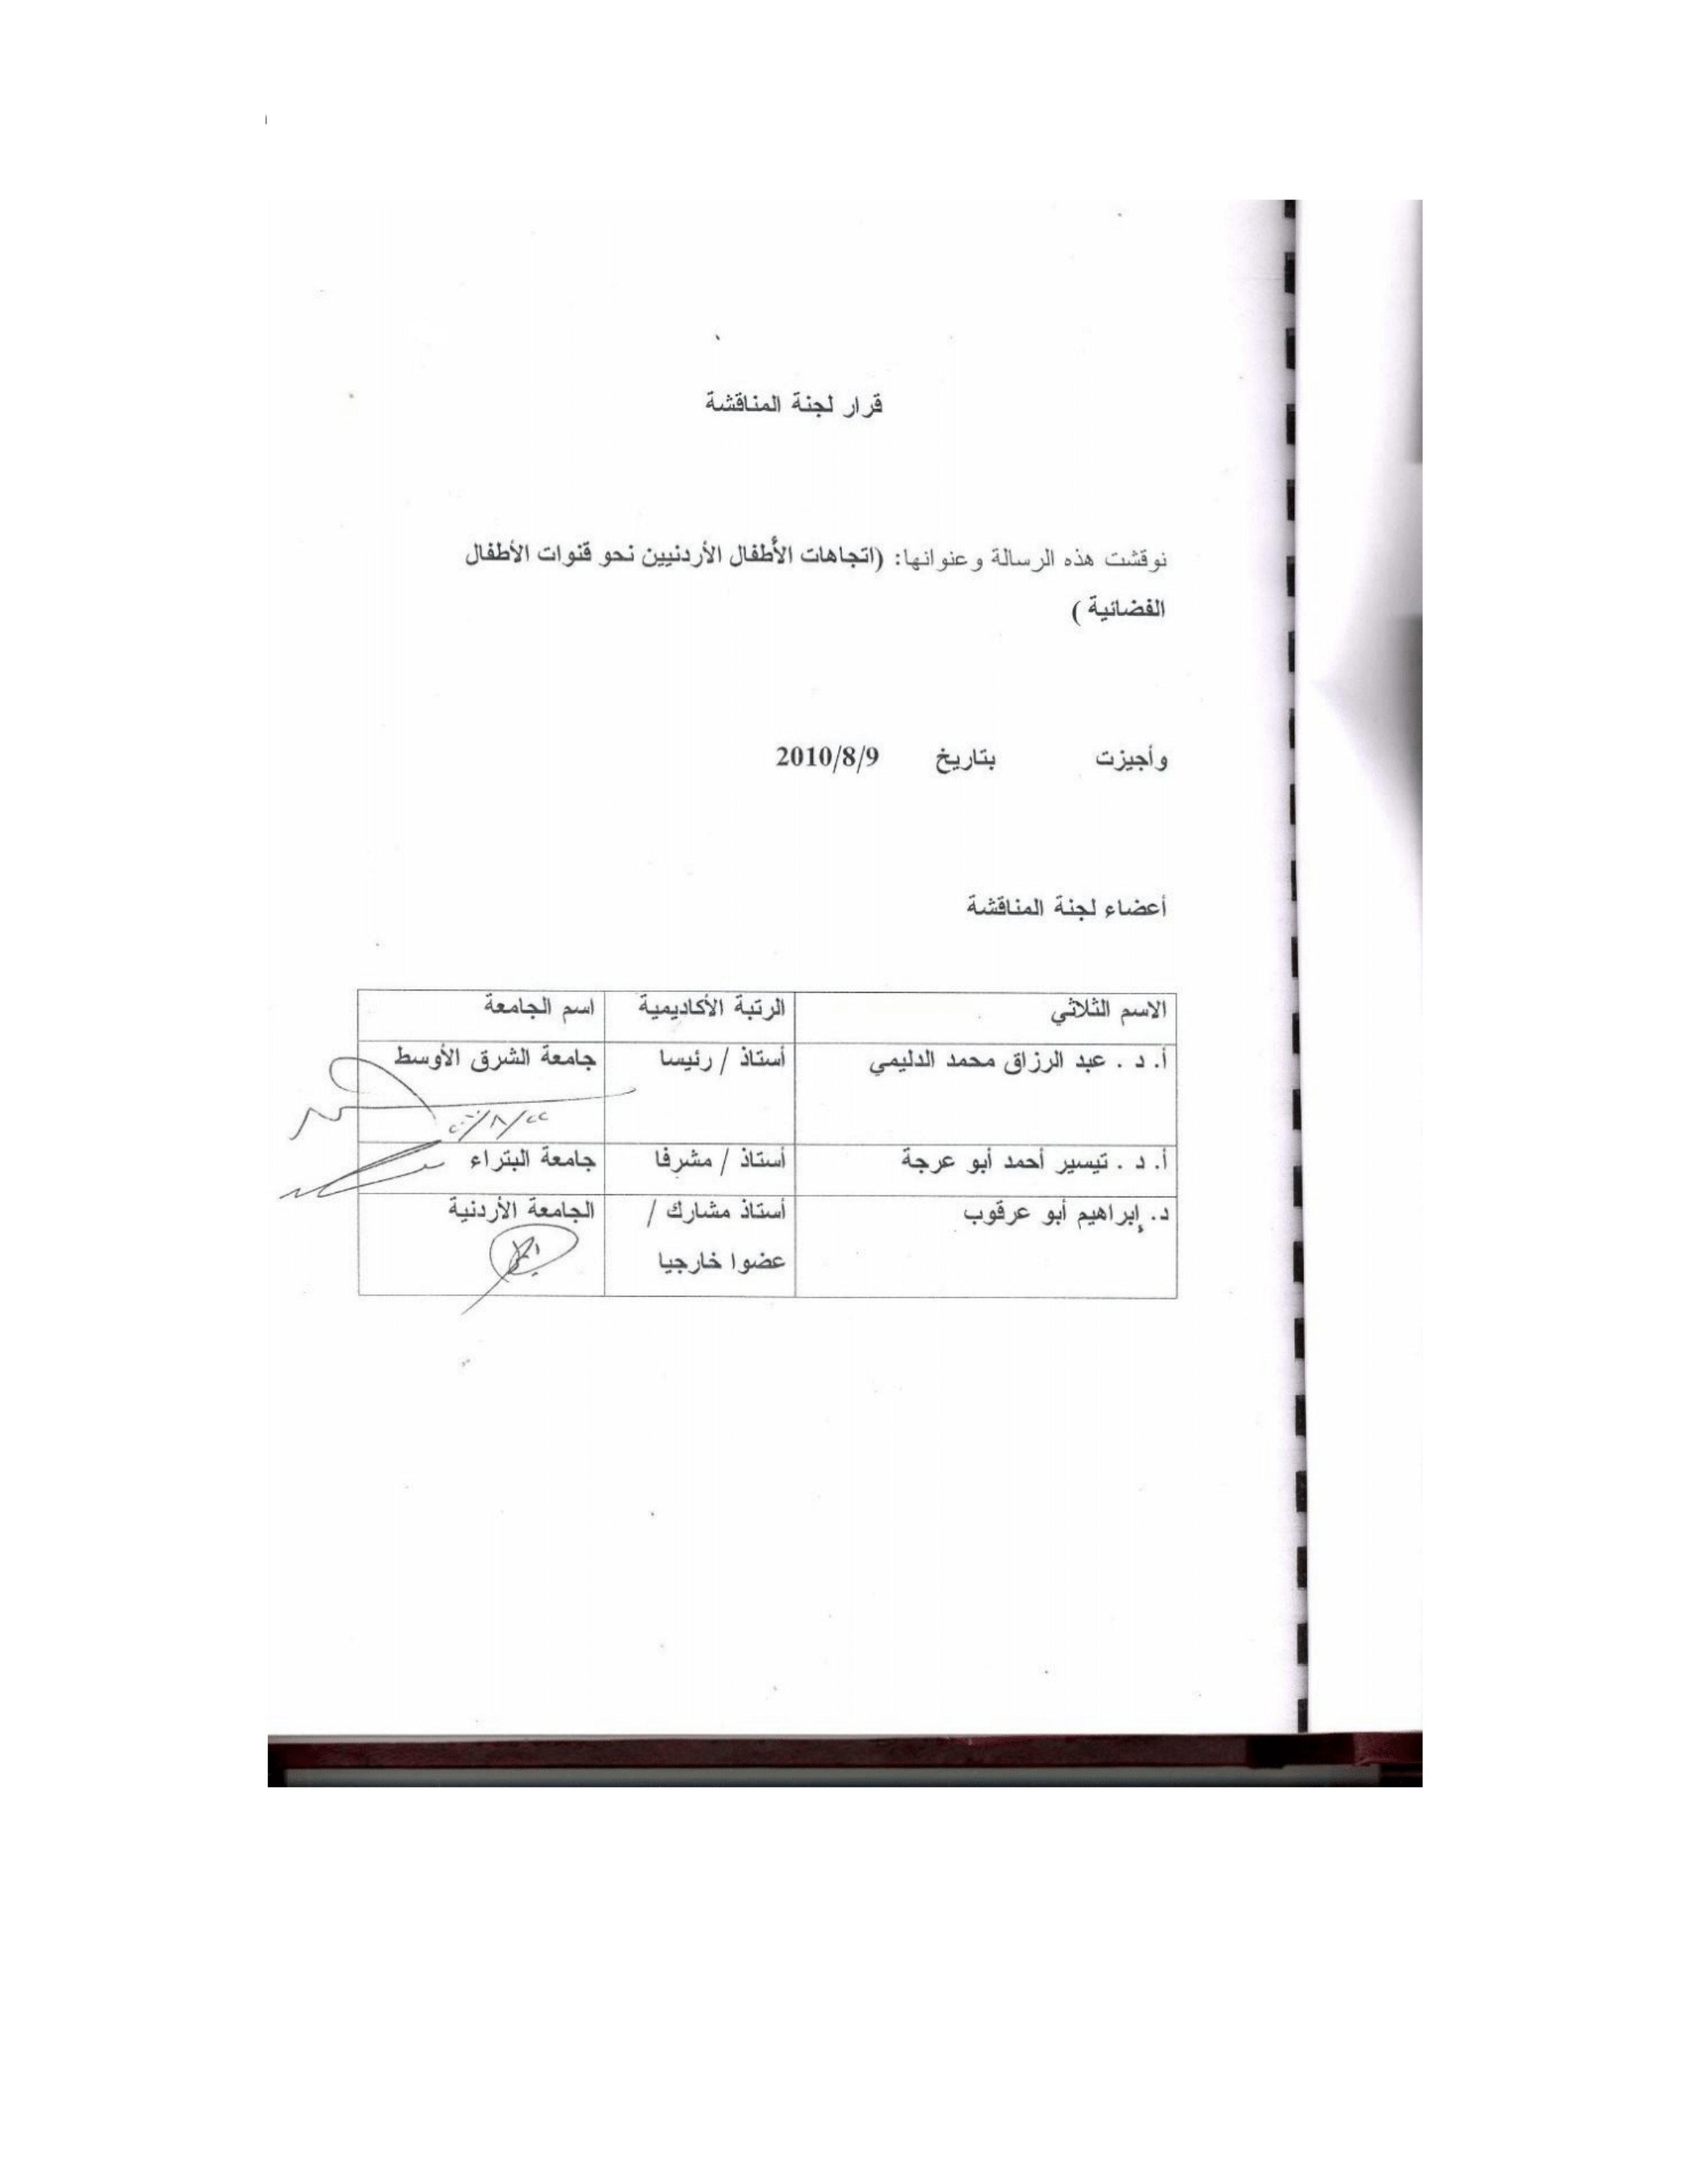 قرار لجنة المناقشة
نوقشت هذه الرسالة وعنوانها: (اتجاهات الأطفال الأردنيين نحو قنوات الأطفال
الفضائية )
وأجيزت بتاريخ 2010/8/9
أعضاء لجنة المناقشة
الاسم الثلاثي الرتبة الأكاديمية اسم الجامعة
أ. د . عبد الرزاق محمد الدليمي أستاذ / رئيسا جامعة الشرق الأوسط
أ. د . تيسير أحمد أبو عرجة أستاذ / مشرفا جامعة البتراء
د. إبراهيم أبو عرقوب أستاذ مشارك / الجامعة الأردنية
عضوا خارجيا